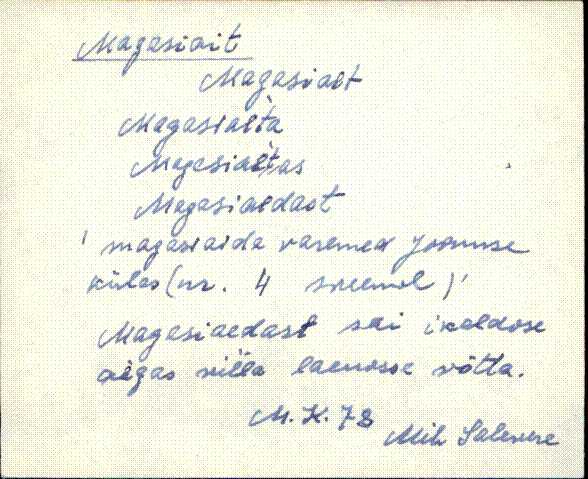 Magasiait
Magasiaet
Magasiaeta
Magasiaetas
Magasiaedast
' magasiaida varemed Joonuse
küles (nr. 4 skeemil)'
Magasiaedast sai ikaldose
aegas villa laenosse võtta.
M. K. 78
Mih Salevere